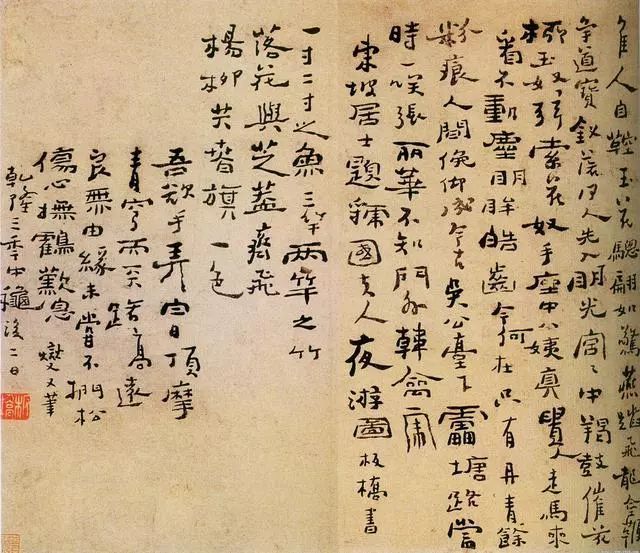 佳人自鞚玉花驄翩如驚燕蹋飛龍金鞭
爭道寶釵落何人先入明光宮宮中羯鼓催花
柳玉奴弦索花奴手座中八姨真貴人走馬來
看不動塵明眸皓齒今何在只有丹青餘
淚痕人間俛仰成今古吳公臺下雷塘路當
時一笑張麗華不知門外韓禽虎
東坡居士題虢國夫人夜游圖 板橋書
一寸二寸之魚三竿兩竿之竹
落花與芝蓋齊飛
楊柳共春旗一色
吾欲手弄白日頂摩
青穹而天路高遠
良無由緣未嘗不捫松
傷心撫鶴歎息 燮又筆
乾隆三年中秋後二日